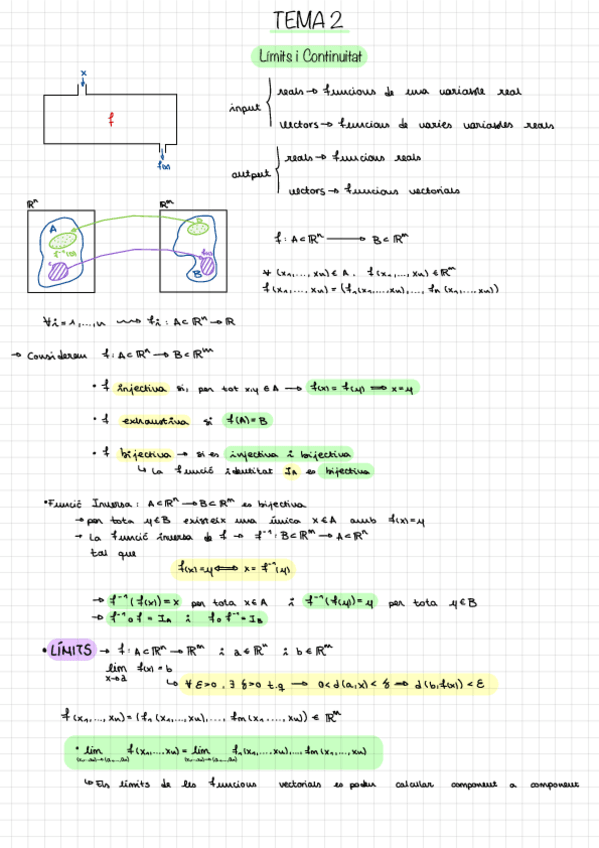 TEMA 2
Límits i Continuitat
x
f
f(x)
input
reals → funcions de una variable real
vectors → funcions de varies variables reals
output
reals → funcions reals
vectors → funcions vectorials
ℝⁿ
ℝᵐ
A
B
f: A⊂ℝⁿ ⟶ B⊂ℝᵐ
∀ (x₁,...,xₙ) ∈ A , f(x₁,...,xₙ) ∈ ℝᵐ
f(x₁,...,xₙ) = (f₁(x₁,...,xₙ),..., fₙ(x₁,...,xₙ))
∀i = 1,...,n ⟿ fᵢ : A⊂ℝⁿ → ℝ
→ Considerem f: A⊂ℝⁿ → B⊂ℝᵐ
• f injectiva si, per tot x,y ∈ A → f(x) = f(y) ⟹ x=y
• f exhaustiva si f(A) = B
• f bijectiva → si es injectiva i bijectiva
↳ La funció identitat I_A es bijectiva
• Funció Inversa: A⊂ℝⁿ → B⊂ℝᵐ es bijectiva
→ per tota y∈B existeix una única x∈A amb f(x)=y
→ La funció inversa de f → f⁻¹: B⊂ℝᵐ → A⊂ℝⁿ
tal que
f(x)=y ⟺ x = f⁻¹(y)
→ f⁻¹(f(x)) = x per tota x∈A i f⁻¹(f(y)) = y per tota y∈B
→ f⁻¹ ∘ f = I_A i f ∘ f⁻¹ = I_B
• LÍMITS → f: A⊂ℝⁿ → ℝᵐ i a∈ℝⁿ i b∈ℝᵐ
lim f(x) = b
x→a
↳ ∀ ε>0 , ∃ δ>0 t.q → 0<d(a,x)<δ ⟹ d(b,f(x)) < ε
f(x₁,...,xₙ) = (f₁(x₁,...,xₙ),..., fm(x₁,...,xₙ)) ∈ ℝᵐ
• lim f(x₁,...,xₙ) = lim f₁(x₁,...,xₙ),..., fm(x₁,...,xₙ)
(x₁...xₙ)→(a₁,...,aₙ) (x₁...xₙ)→(a₁,...,aₙ)
↳ Els limits de les funcions vectorials es poden calcular component a component